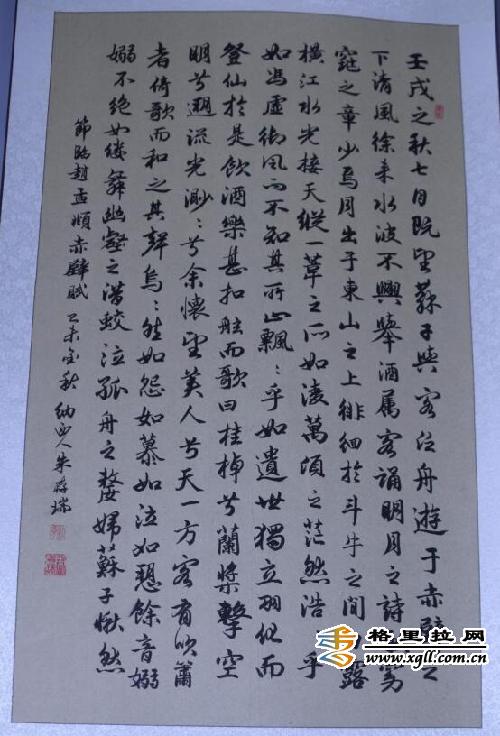 壬戌之秋七月既望蘇子與客泛舟遊于赤壁之
下清風徐来水波不興舉酒属客誦明月之詩窈
窕之章少焉月出于東山之上徘徊於斗牛之間露
横江水光接天縱一葦之所如凌萬頃之茫然浩乎
如馮虚御風而不知其所止飄〻乎如遺世獨立羽化而
登仙於是飲酒樂甚扣舷而歌曰桂棹兮蘭槳擊空
明兮遡流光渺〻兮余懷望美人兮天一方客有吹簫
者倚歌而和之其聲烏〻然如怨如慕如泣如愬餘音嫋
嫋不絶如縷舞幽壑之潜蛟泣孤舟之嫠婦蘇子愀然
節臨趙孟頫赤壁賦 乙未金秋 納西人朱瑞
格里拉网
www.xgll.com.cn